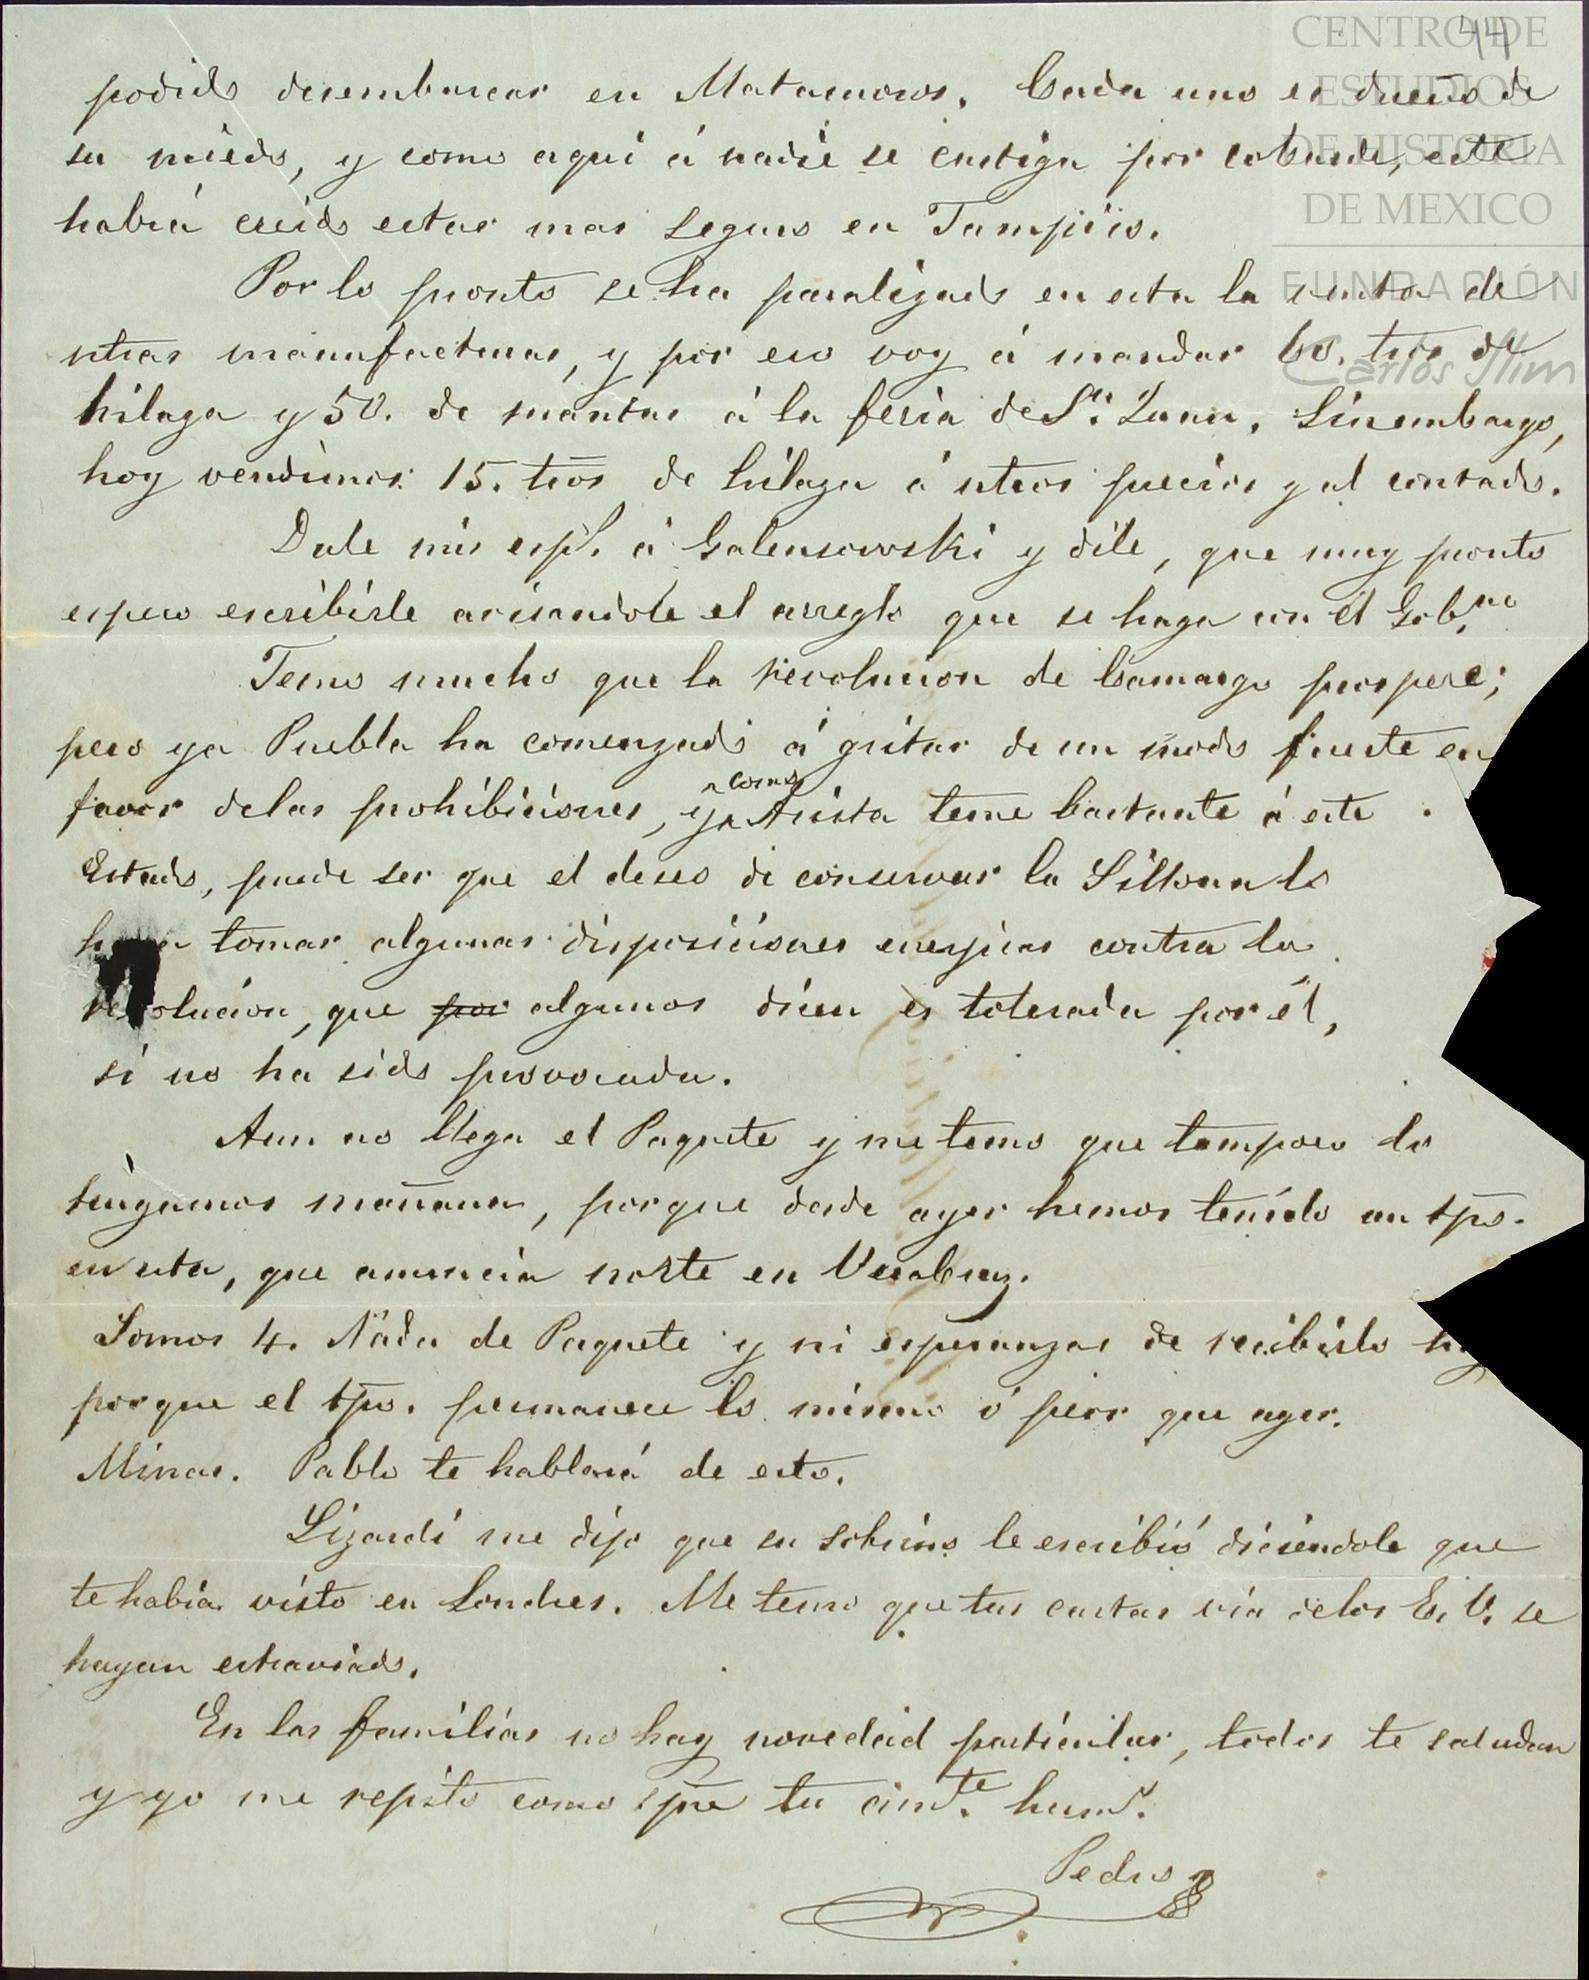 44
CENTRO DE
ESTUDIOS
DE HISTORIA
DE MEXICO
FUNDACIÓN
Carlos Slim
podido desembarcar en Matamoros. Cada uno es dueño de
su miedo, y como aquí á nadie se castiga por cobarde, este
habrá creido estar mas seguro en Tampico.
Por lo pronto se ha paralizado en esta la venta de
ntras manufacturas, y por eso voy á mandar 60. tros de
hilaza y 50. de mantas á la feria de Sn. Juan. Sinembargo,
hoy vendimos 15. tros de hilaza á ntros precios y al contado.
Dale mis esps. á Galensowski y dile, que muy pronto
espero escribirle avisandole el arreglo que se haga con el Gobno.
Temo mucho que la revolucion de Camargo prospere;
pero ya Puebla ha comenzado á gritar de un modo fuerte en
favor delas prohibiciones, y como Arista teme bastante á este
Estado, puede ser que el deseo de conservar la Sillona lo
tomar algunas disposiciones enerjicas contra la
revolucion, que por algunos dicen es tolerada por él,
si no ha sido provocada.
Aun no llega el Paquete y me temo que tampoco lo
tengamos mañana, porque desde ayer hemos tenido un tpo.
en esta, que anuncia norte en Veracruz.
Somos 4. Nada de Paquete y ni esperanzas de recibirlo
porque el tpo. permanece lo mismo ó peor que ayer.
Minas. Pablo te hablará de esto.
Lizardi me dijo que su sobrino le escribió diciendole que
te habia visto en Londres. Me temo que tus cartas via delos E. U. se
hayan estraviado.
En las familias no hay novedad particular, todos te saludan
y yo me repito como spre tu amte. hermo.
Pedro